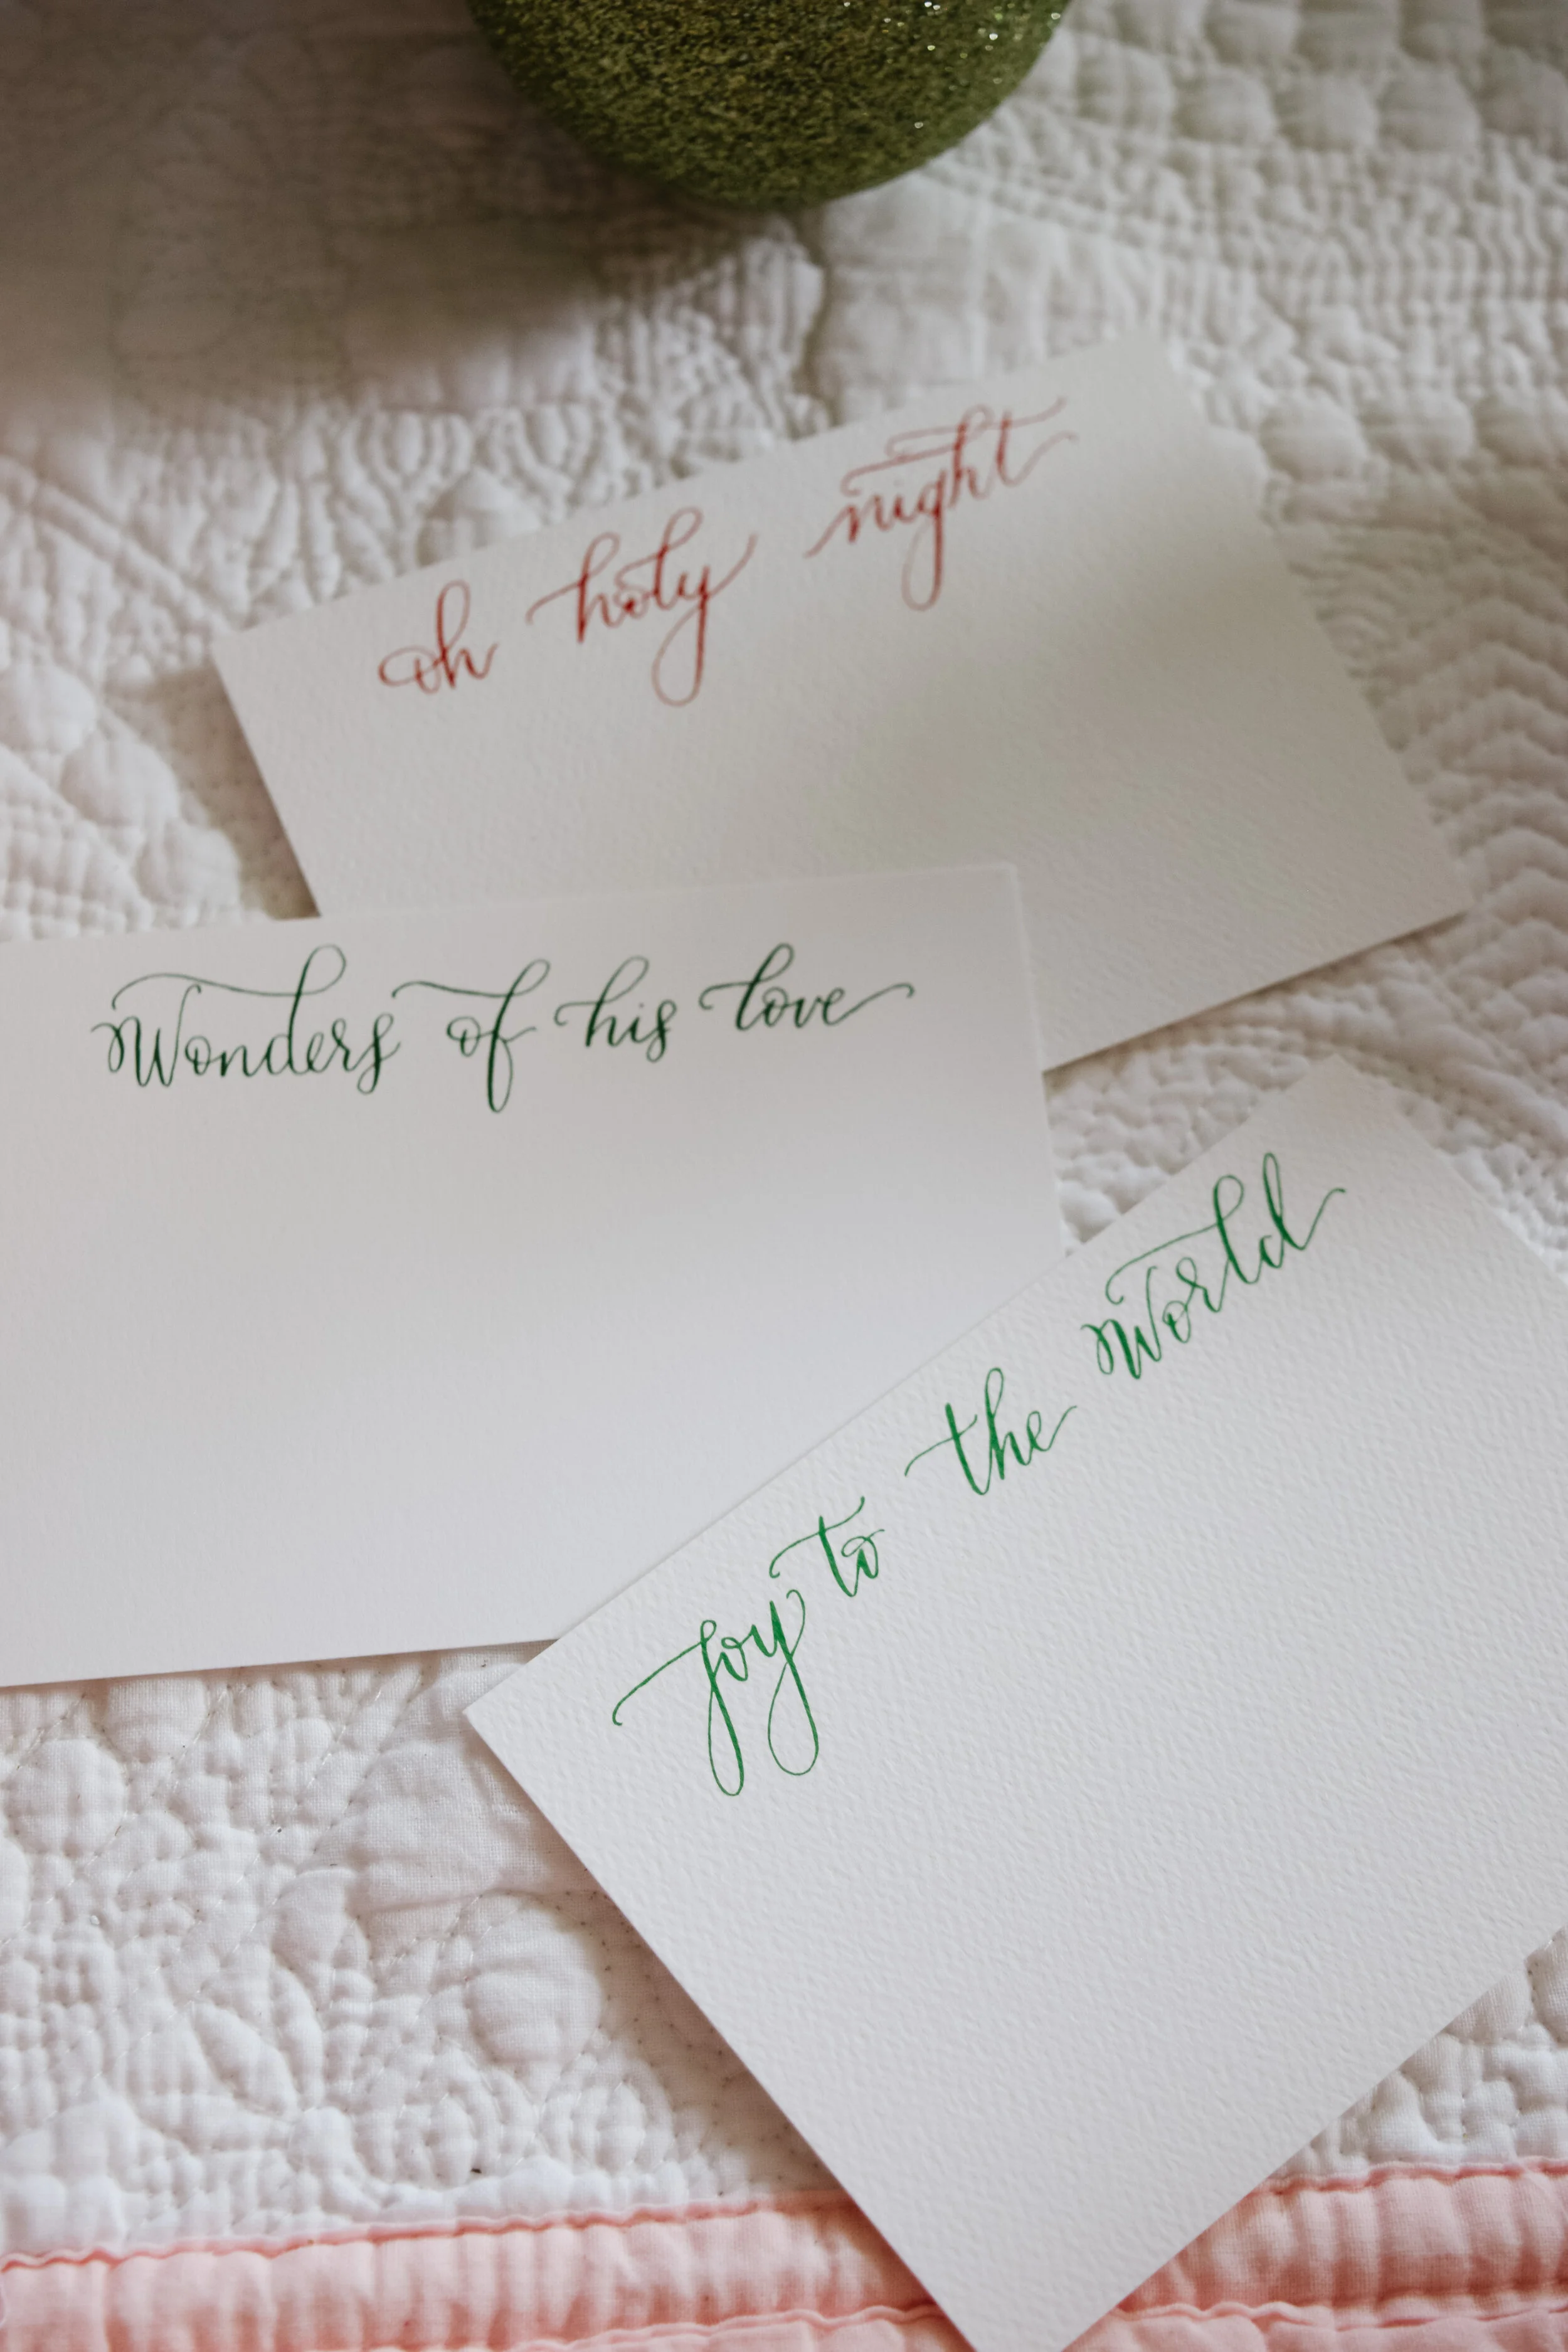 oh holy night
Wonders of his love
Joy to the World